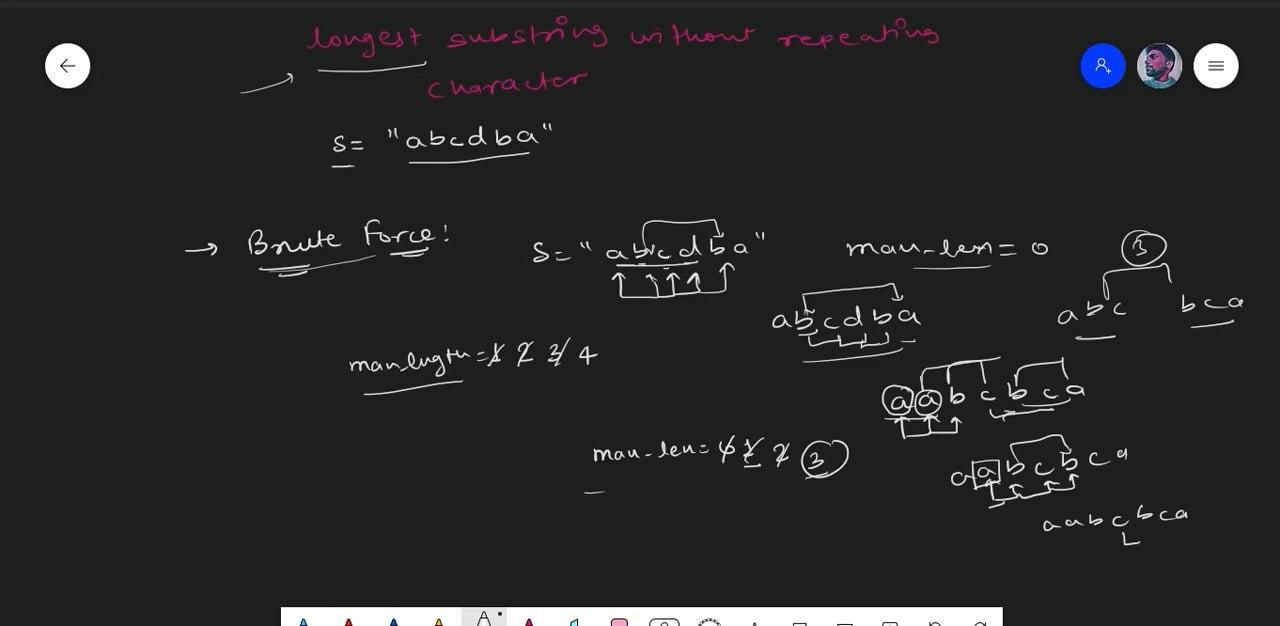 longest substring without repeating
character
s= "abcdba"
→ Brute Force!
s= "abcdba"
max-len = 0
3
abcdba
abc bca
max-length = 1 2 3 4
aabcbca
max-len = 0 1 2 3
aabcbca
aabcbca